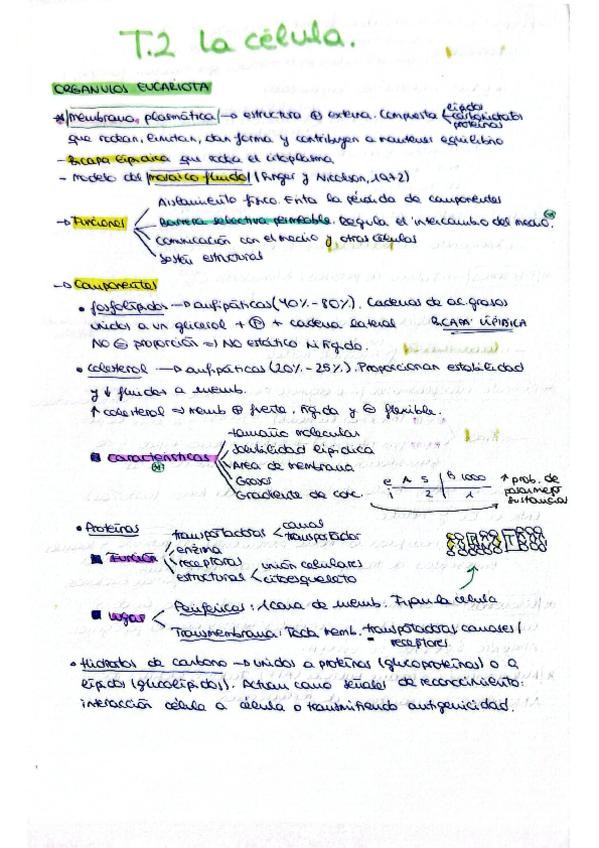 T.2 La célula.
ORGANULOS EUCARIOTA
* Membrana plasmática → estructura ⊕ externa. Compuesta < lípidos carbohidratos proteínas
que rodean, limitan, dan forma y contribuyen a mantener equilibrio
- Bicapa lipídica que rodea el citoplasma
- Modelo del mosaico fluido (Singer y Nicolson, 1972)
Aislamiento físico. Evita la pérdida de componentes
→ Funciones
Barrera selectiva permeable. Regula el intercambio del medio.
Comunicación con el medio y otras células
Sostén estructuras
→ Componentes
• fosfolípidos → anfipáticas (40% - 80%). Cadenas de ac. grasos
unidos a un glicerol + Ⓟ + cadena lateral BICAPA LIPÍDICA
NO ⊖ proporción => NO estático Ni Rígido.
• Colesterol → anfipáticas (20% - 25%). Proporcionan estabilidad
y ↓ fluidos a memb.
↑ colesterol => memb ⊕ fuerte. Rígida y ⊖ flexible.
tamaño molecular
Solubilidad lipídica
■ Características
Área de membrana
Grosor
Gradiente de conc.
↑ prob. de
sustancias
• Proteínas
transportadoras < canal transportador
■ Función
enzima
receptoras
estructuras < unión celulares citoesqueleto
■ Lugar
Periféricas: 1 cara de memb. Fijan la célula
Transmembrana: Toda memb. transportadoras canales /
receptores
• Hidratos de carbono → unidos a proteínas (glucoproteínas) o a
lípidos (glucolípidos). Actúan como señales de reconocimiento:
interacción célula a célula o transmitiendo antigenicidad.